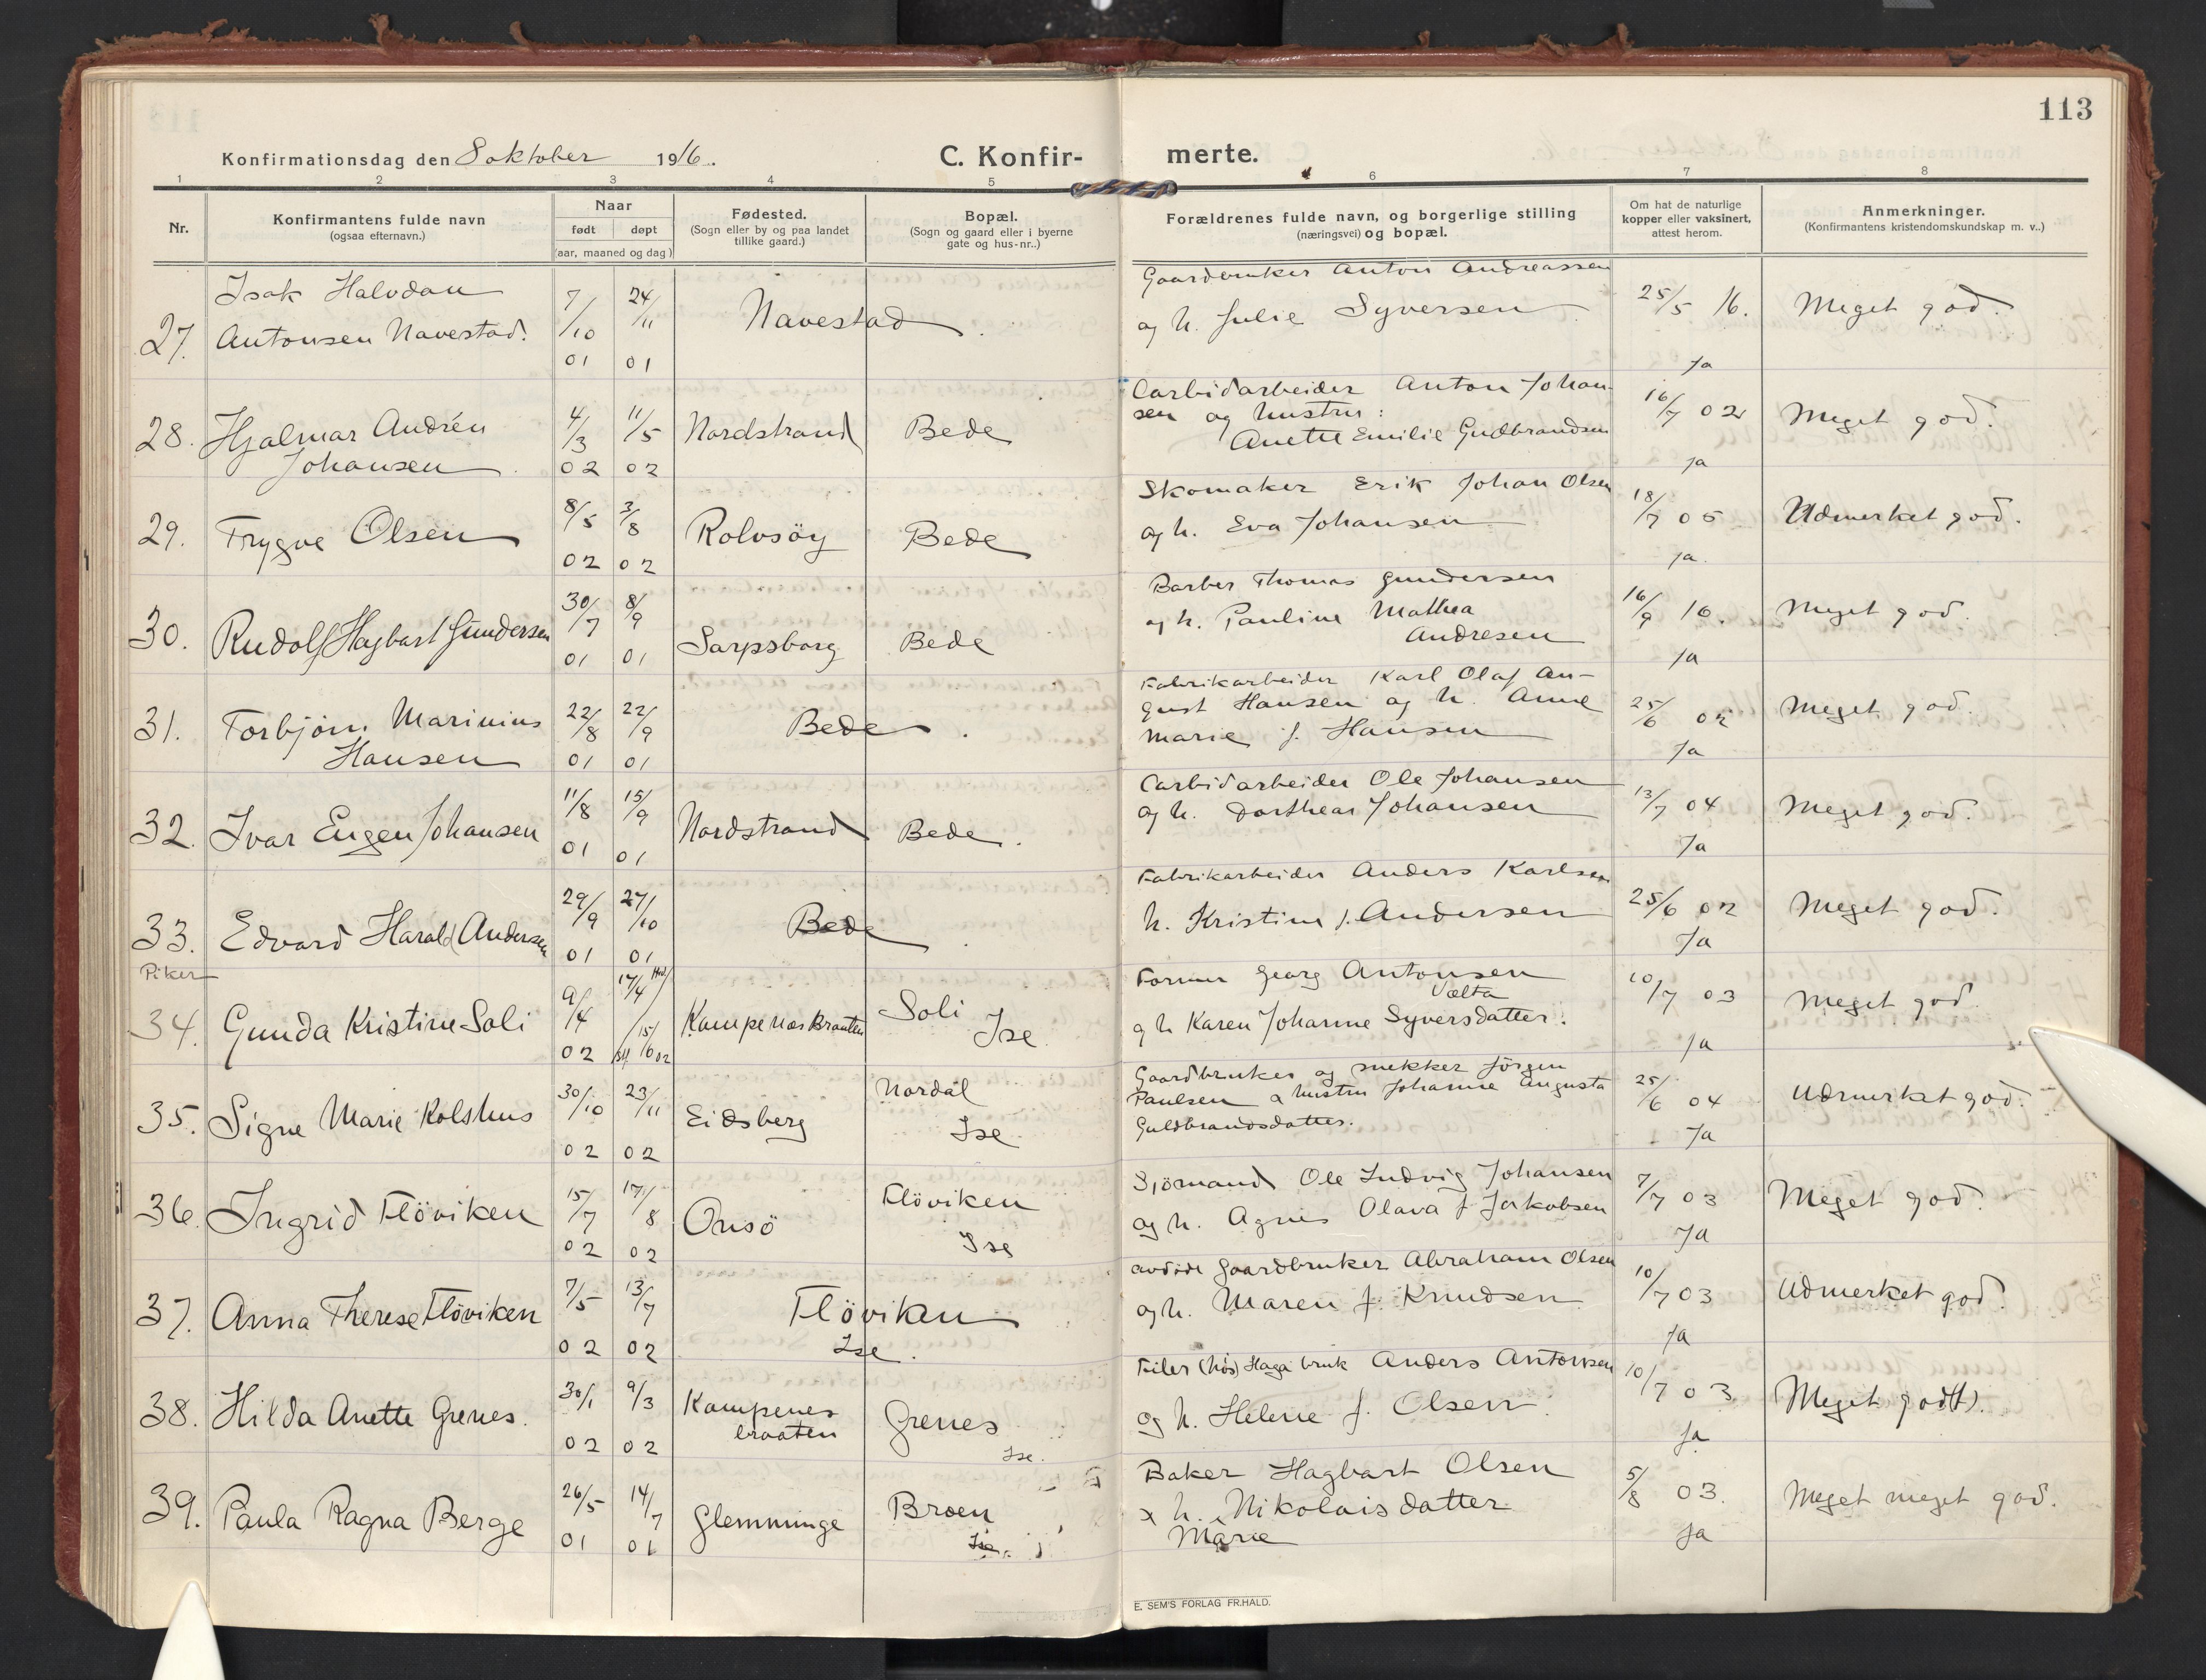 113
Konfirmationsdag den 8 oktober 1916.
C. Konfir-
merte.
1 2 3 4 5 6 7 8
Nr.
Konfirmantens fulde navn
(ogsaa efternavn.)
Naar
født døpt
(aar, maaned og dag)
Fødested.
(Sogn eller by og paa landet
tillike gaard.)
Bopæl.
(Sogn og gaard eller i byerne
gate og hus-nr..)
Forældrenes fulde navn, og borgerlige stilling
(næringsvei) og bopæl.
Om hat de naturlige
kopper eller vaksinert,
attest herom.
Anmerkninger.
(Konfirmantens kristendomskundskap m. v..)
27. Isak Halvdan
Antonsen Navestad.
7/10 01 24/11 01
Navestad.
Gaardbruker Anton Andreassen
og h. Julie Syversen
25/5 16.
Ja
Meget god.
28. Hjalmar Andrén
Johansen.
4/3 02 11/5 02
Nordstrand
Bede
Carbidarbeider Anton Johan-
sen og hustru:
Anette Emilie Gudbrandsen
16/7 02
Ja
Meget god.
29. Trygve Olsen
8/5 02 3/8 02
Rolvsöy
Bede
Skomaker Erik Johan Olsen
og h. Eva Johansen
18/7 05
Ja
Udmerket god.
30. Rudolf Hagbart Gundersen
30/7 01 8/9 01
Sarpsborg
Bede
Barber Thomas Gundersen
og h. Pauline Mathea
Andresen
16/9 16.
Ja
Meget god.
31. Torbjørn Marinius
Hansen
22/8 01 22/9 01
Bede.
Fabrikarbeider Karl Olaf Au-
gust Hansen og h. Anne
Marie f. Hansen
25/6 02
Ja
Meget god.
32. Ivar Eugen Johansen
11/8 01 15/9 01
Nordstrand
Bede.
Carbidarbeider Ole Johansen
og h. Dorthea Johansen
13/7 04
Ja
Meget god.
33. Edvard Harald Andersen
29/9 01 27/10 01
Bede.
Fabrikarbeider Anders Karlsen
h. Kristine f. Andersen
25/6 02
Ja
Meget god.
Piker
34. Gunda Kristine Soli
9/4 02 17/4 15/16 02
Kampenes Braaten
Soli
Ise
Former Georg Antonsen
Vælta
g h Karen Johanne Syversdatter.
10/7 03
Ja
Meget god.
35. Signe Marie Kolshus
30/10 02 23/11 02
Eidsberg
Nordal
Ise
Gaardbruker og snekker Jörgen
Paulsen & hustru Johanne Augusta
Guldbrandsdatter.
25/6 04
Ja
Udmerket god.
36. Ingrid Flöviken
15/7 02 17/8 02
Onsö
Flöviken
Ise
Sjömand Ole Ludvig Johansen
og h. Agnes Olava f. Jakobsen
7/7 03
Ja
Meget god.
37. Anna Therese Flöviken
7/5 02 13/7 02
Flöviken
Ise.
avdöde Gaardbruker Abraham Olsen
og h. Maren f. Knudsen
10/7 03
Ja
Udmerket god.
38. Hilda Anette Grenes.
30/1 02 9/3 02
Kampenes
braaten
Grenes
Ise.
Filer (hos) Haga bruk Anders Antonsen
og h. Helene f. Olsen.
10/7 03
Ja
Meget god(t).
39. Paula Ragna Berge
26/5 01 14/7 01
Glemminge
Broen
Ise.
Baker Hagbart Olsen
& h. Nikolaisdatter
Marie
5/8 03.
Ja
Meget meget god.
E. SEM'S FORLAG FR.HALD.